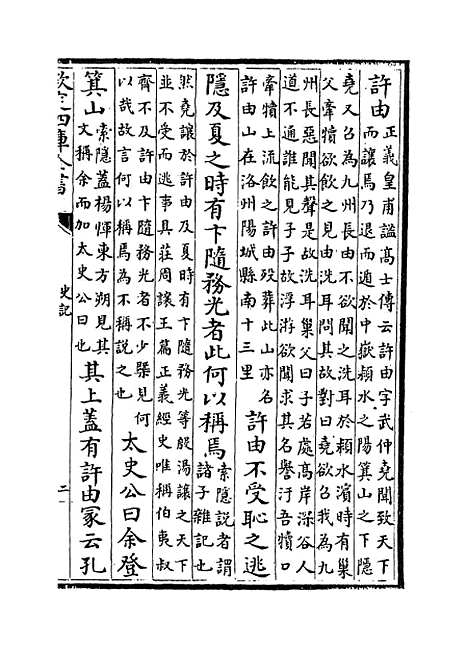 許由
正義皇甫謐髙士傳云許由字武仲堯聞致天下
而讓焉乃退而遁於中嶽潁水之陽箕山之下隱
堯又召為九州長由不欲聞之洗耳於潁水濱時有巢
父牽犢欲飲之見由洗耳問其故對曰堯欲召我為九
州長惡聞其聲是故洗耳巢父曰子若處髙岸深谷人
道不通誰能見子子故浮游欲聞求其名譽汙吾犢口
牽犢上流飲之許由歿葬此山亦名
許由山在洛州陽城縣南十三里
許由不受恥之逃
隱及夏之時有卞隨務光者此何以稱焉
索隱説者謂
諸子雜記也
然堯讓於許由及夏時有卞隨務光等殷湯讓之天下
並不受而逃事具莊周讓王篇正義經史唯稱伯夷叔
齊不及許由卞隨務光者不少槩見何
以哉故言何以稱焉為不稱説之也
太史公曰余登
箕山
索隱蓋楊惲東方朔見其
文稱余而加太史公曰也
其上蓋有許由冢云孔
欽定四庫全書
史記